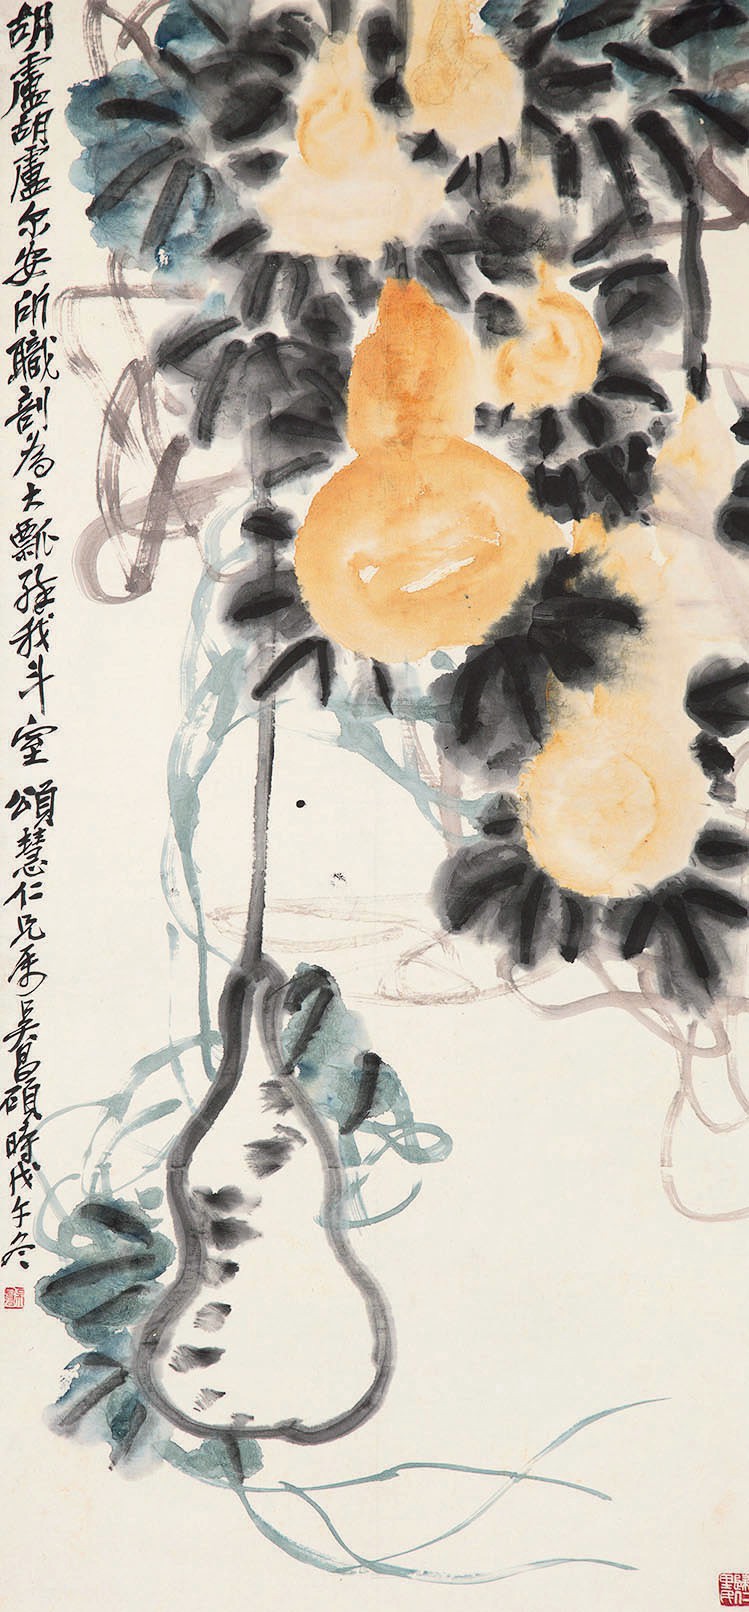 胡盧胡盧尔安所職剖為大瓢
我斗室 頌慧仁兄
吳昌碩時戊午冬
歸仁里民